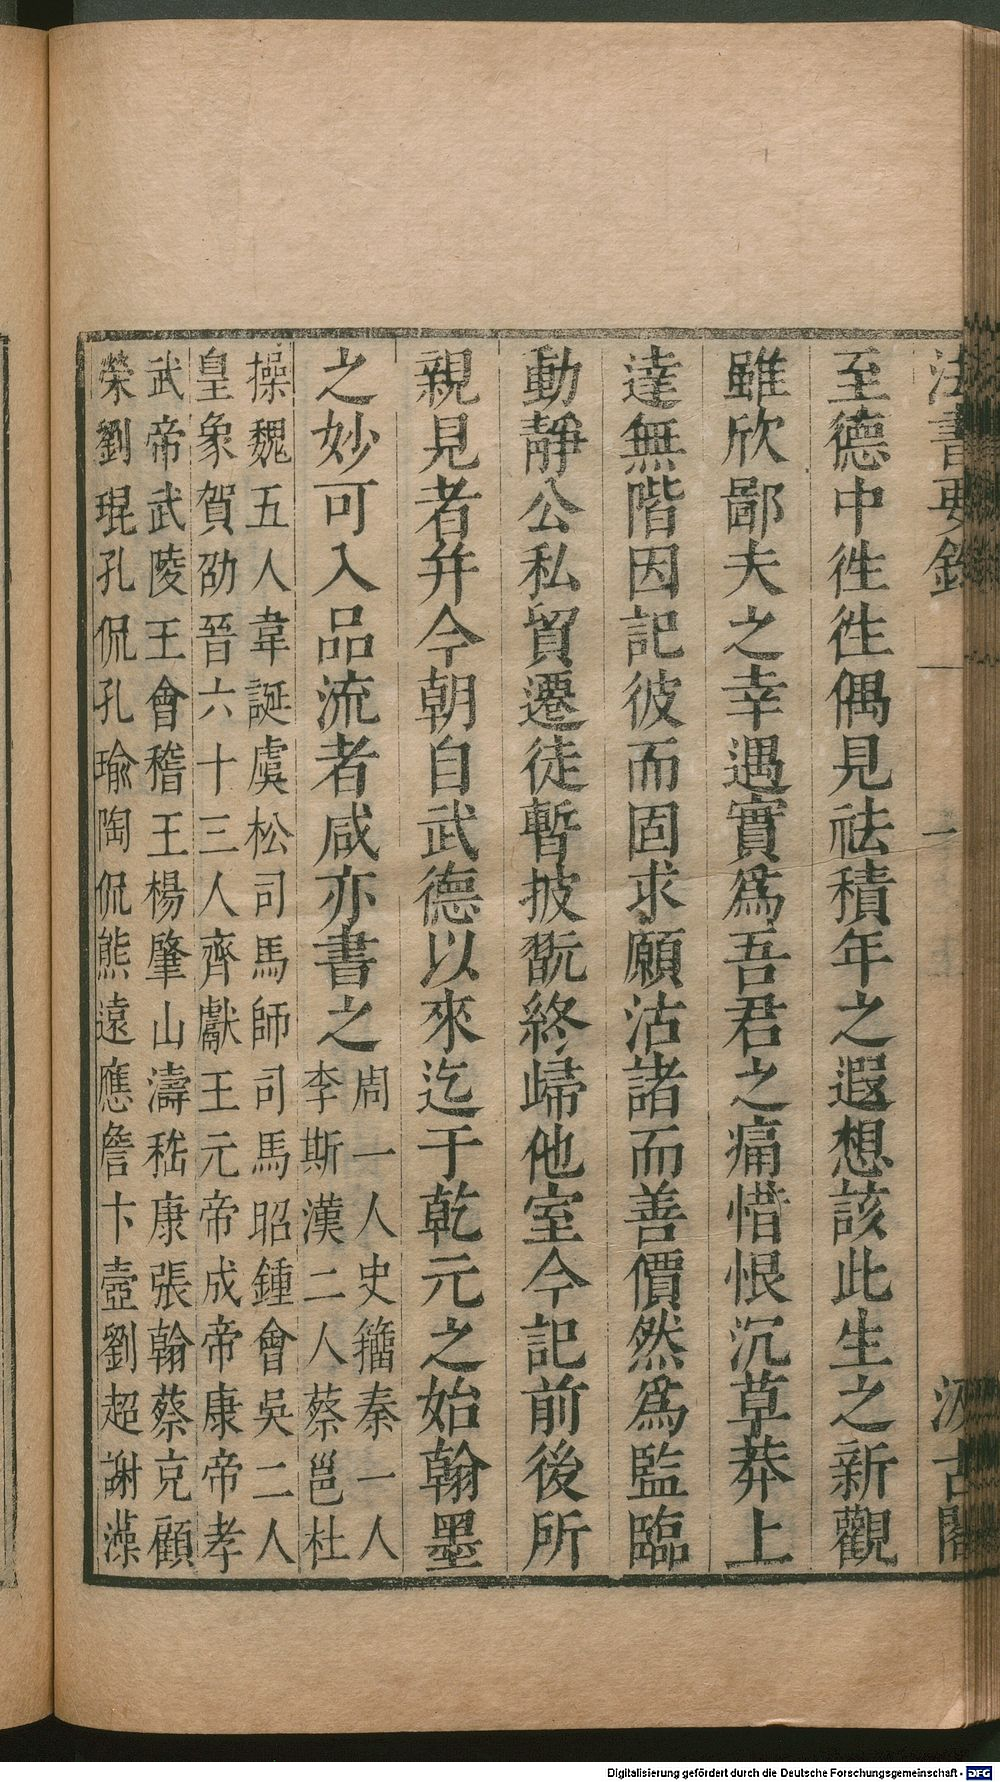 法書要錄
一
汲古閣
至德中徃徃偶見祛積年之遐想該此生之新觀
雖欣鄙夫之幸遇實爲吾君之痛惜恨沉草莽上
達無階因記彼而固求願沽諸而善價然爲監臨
動靜公私貿遷徒暫披翫終歸他室今記前後所
親見者并今朝自武德以來迄于乾元之始翰墨
之妙可入品流者咸亦書之
周一人史籀秦一人
李斯漢二人蔡邕杜
操魏五人韋誕虞松司馬師司馬昭鍾會吳二人
皇象賀劭晉六十三人齊獻王元帝成帝康帝孝
武帝武陵王會稽王楊肇山濤嵇康張翰蔡克顧
榮劉琨孔侃孔瑜陶侃熊遠應詹卞壼劉超謝藻
Digitalisierung gefördert durch die Deutsche Forschungsgemeinschaft - DFG